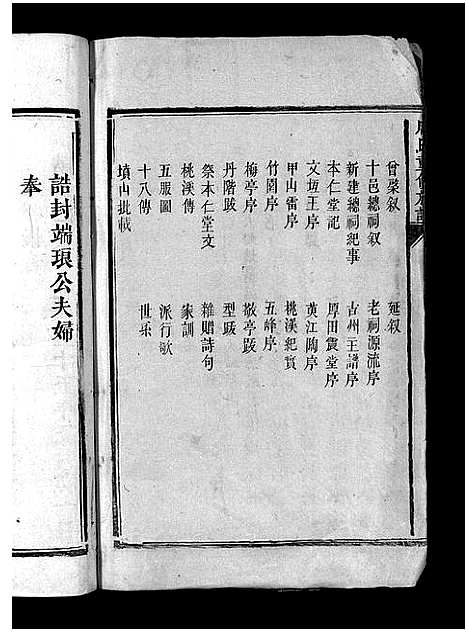 曾榮叙　廷叙
十邑總祠叙　老祠源流序
新建總祠紀事　古州王譜序
本仁堂記　厚田震堂序
文垣王序　黄江陶序
甲山雷序　桃溪紀實
竹園序　五峰序
梅亭序　敬亭跋
丹階跋　型跋
祭本仁堂文　雜贈詩句
桃溪傳　家訓
五服圖　派行歌
十八傳　世系
墳山批載
誥封端琅公夫婦
奉